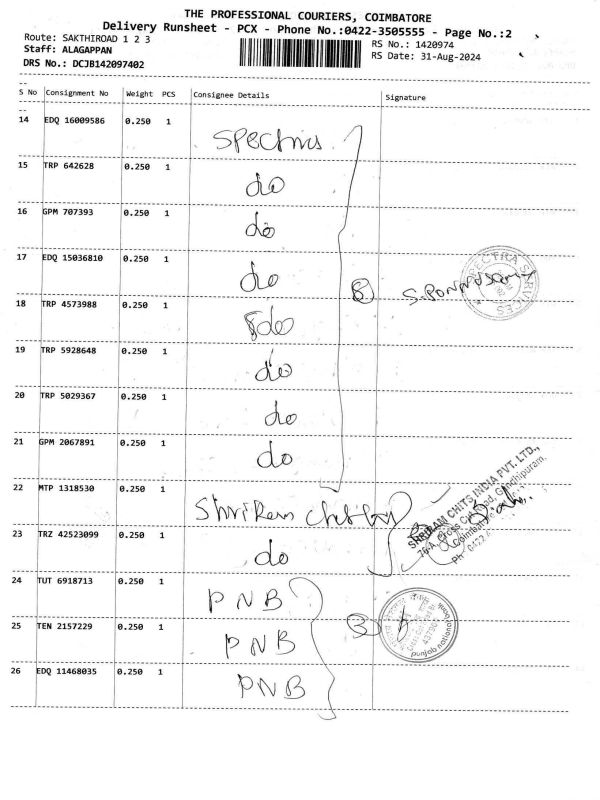 THE PROFESSIONAL COURIERS, COIMBATORE
Delivery Runsheet - PCX - Phone No.:0422-3505555 - Page No.:2
Route: SAKTHIROAD 1 2 3
Staff: ALAGAPPAN
DRS No.: DCJB142097402
RS No.: 1420974
RS Date: 31-Aug-2024
S No Consignment No Weight PCS Consignee Details Signature
14 EDQ 16009586 0.250 1
15 TRP 642628 0.250 1 do
16 GPM 707393 0.250 1 do
17 EDQ 15036810 0.250 1 do
8 S. Ponnusamy
SPECTRA SERVICES
18 TRP 4573988 0.250 1 do
19 TRP 5928648 0.250 1 do
20 TRP 5029367 0.250 1 do
21 GPM 2067891 0.250 1 do
22 MTP 1318530 0.250 1 Shriram chits
SHRIRAM CHITS INDIA PVT. LTD.,
76-A, Cross Cut Road, Gandhipuram,
Coimbatore
Ph : 0422
23 TRZ 42523099 0.250 1 do
24 TUT 6918713 0.250 1 PNB
25 TEN 2157229 0.250 1 PNB
3
punjab national
26 EDQ 11468035 0.250 1 PNB